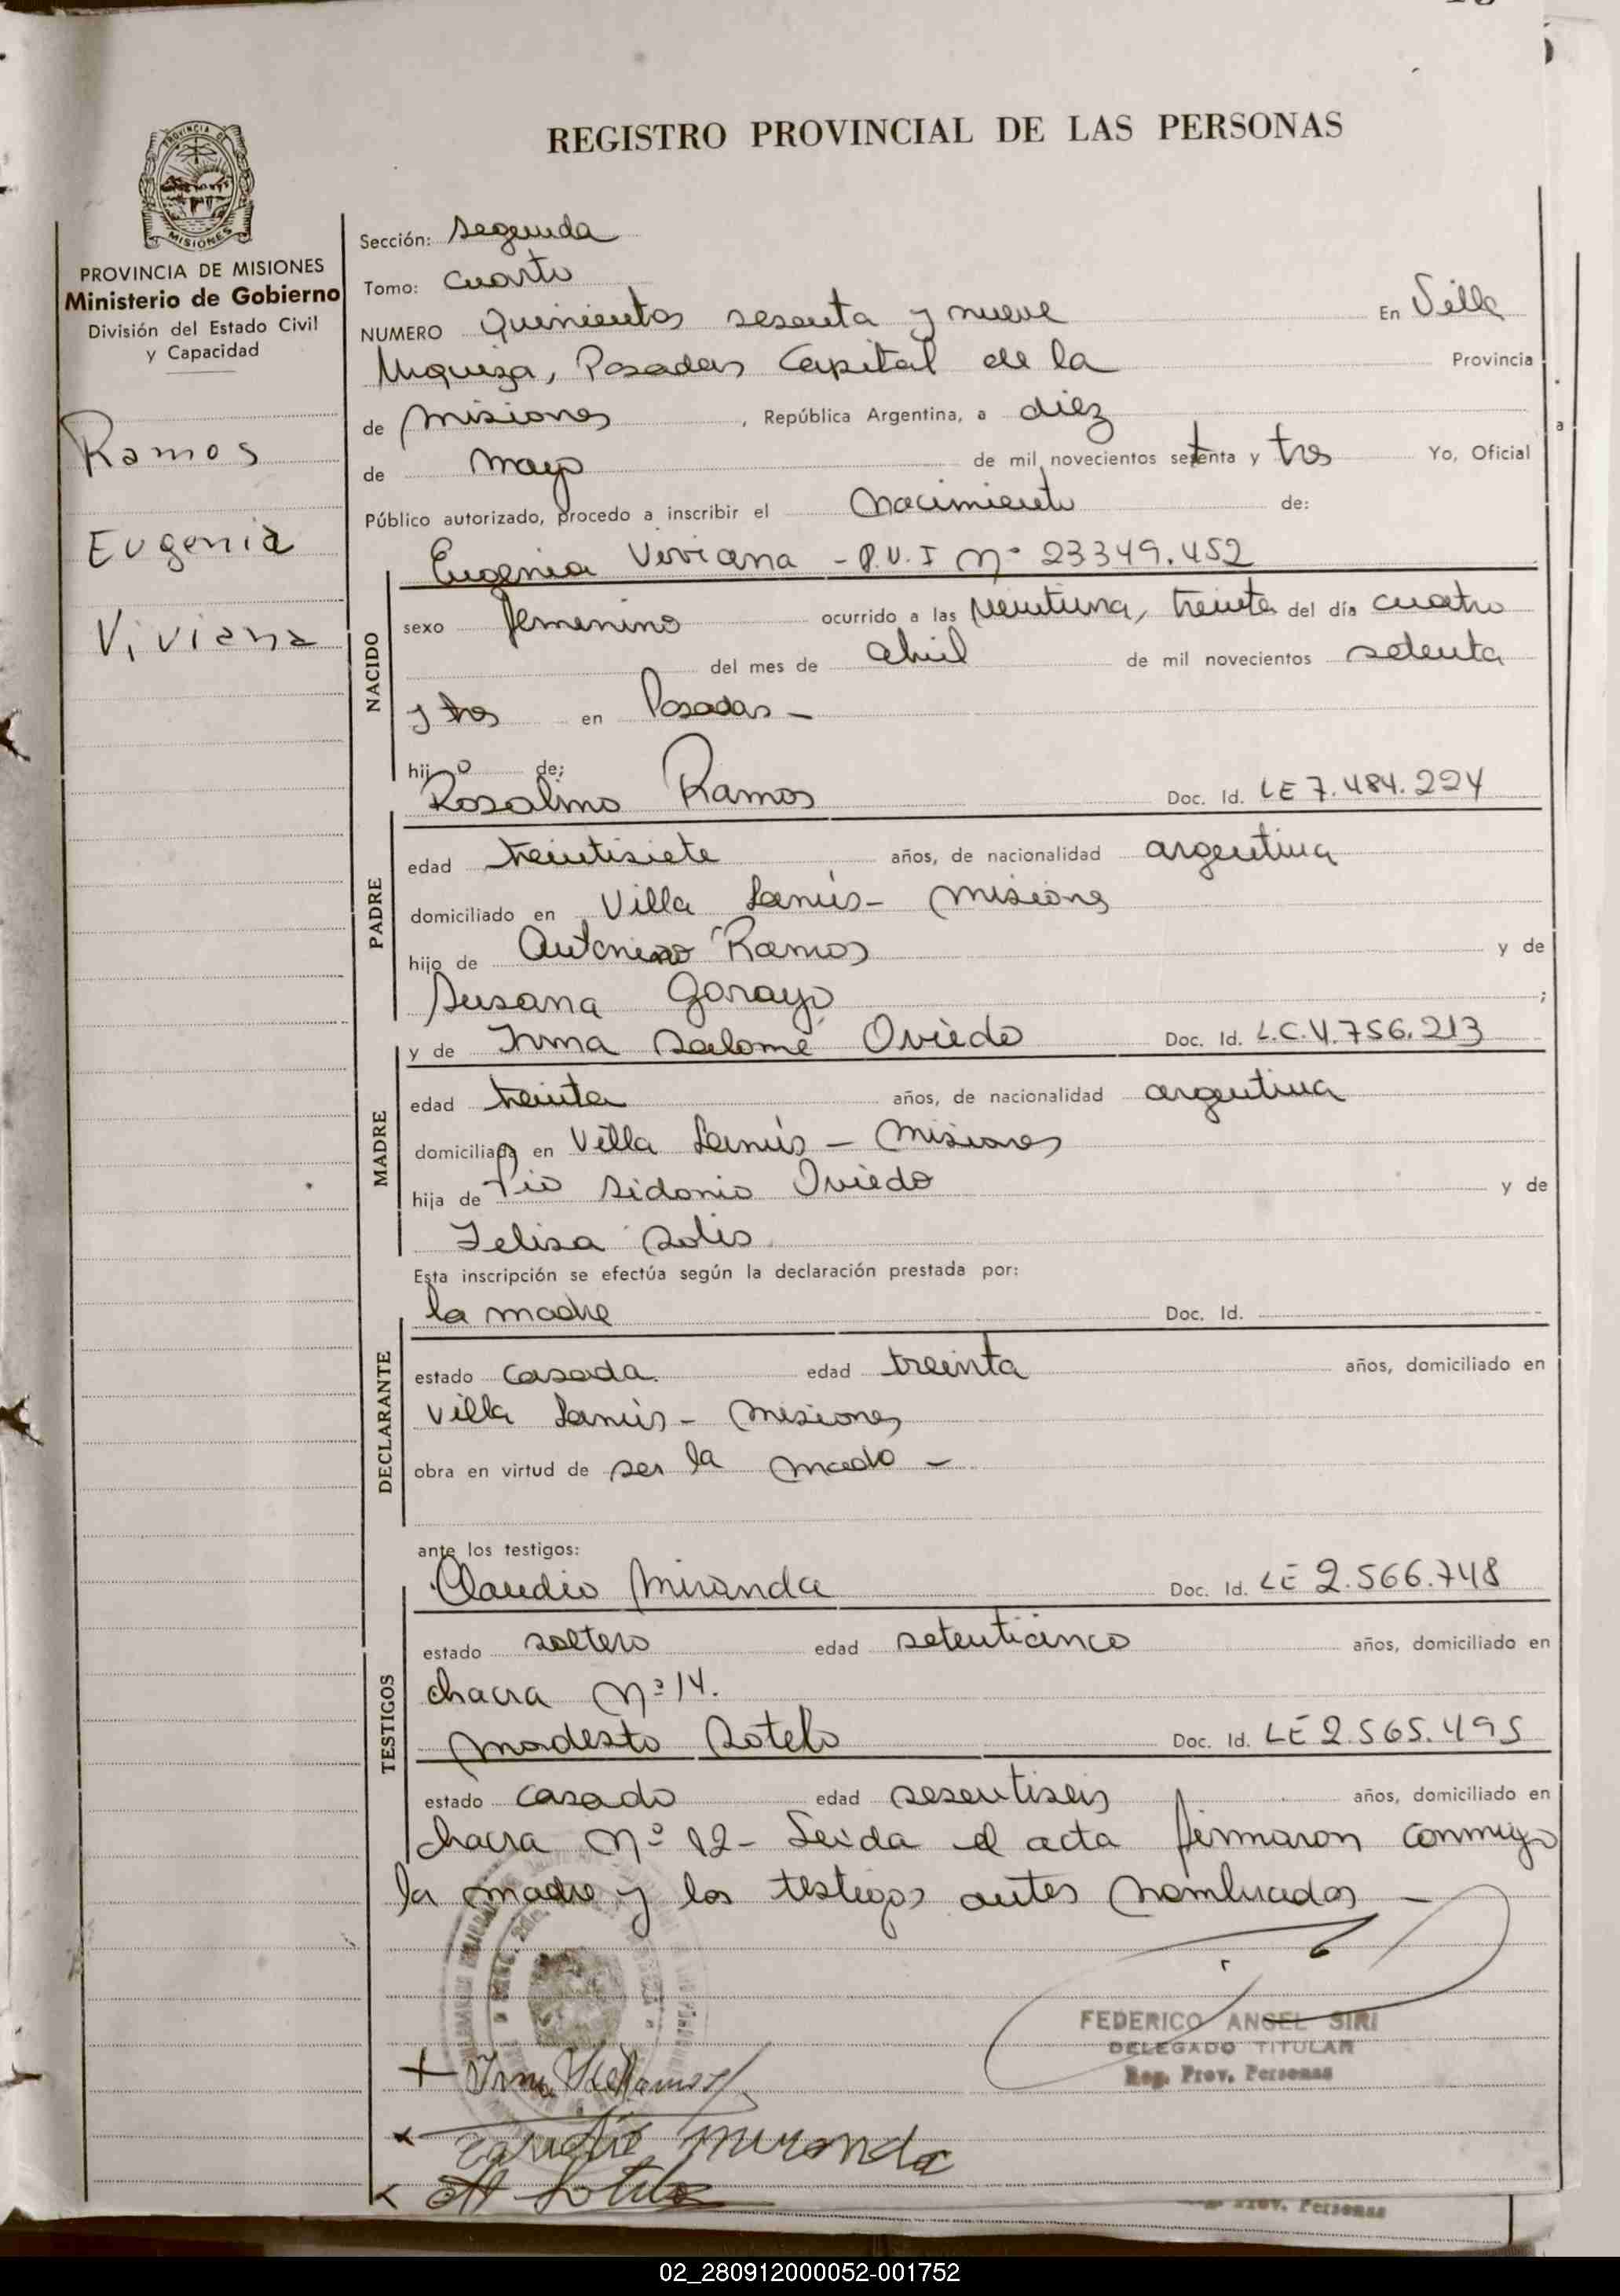 REGISTRO PROVINCIAL DE LAS PERSONAS
PROVINCIA DE
MISIONES
PROVINCIA DE MISIONES
Ministerio de Gobierno
División del Estado Civil
y Capacidad
Ramos
Eugenia
Viviana
Sección: segunda
Tomo: cuarto
NUMERO Quinientos sesenta y nueve En Villa
Urquiza, Posadas Capital de la Provincia
de Misiones, República Argentina, a diez
de mayo de mil novecientos setenta y tres Yo, Oficial
Público autorizado, procedo a inscribir el nacimiento de:
Eugenia Viviana - P.U.I Nº 23349.452
NACIDO
sexo femenino ocurrido a las veintiuna, treinta del día cuatro
del mes de abril de mil novecientos setenta
y tres en Posadas -
hij o de;
Rosalino Ramos Doc. Id. LE 7.484.224
PADRE
edad treintisiete años, de nacionalidad argentina
domiciliado en Villa Lanús - Misiones
hijo de Antonino Ramos y de
Susana Garayo ;
y de Irma Salomé Oviedo Doc. Id. L.C.4.756.213
MADRE
edad treinta años, de nacionalidad argentina
domiciliada en Villa Lanús - Misiones
hija de Pio Sidonio Oviedo y de
Felisa Solis
Esta inscripción se efectúa según la declaración prestada por:
la madre Doc. Id.
DECLARANTE
estado casada. edad treinta años, domiciliado en
Villa Lanús - Misiones
obra en virtud de ser la madre -
ante los testigos:
Claudio Miranda Doc. Id. LE 2.566.748
TESTIGOS
estado soltero edad setenticinco años, domiciliado en
chacra Nº 14.
Modesto Sotelo Doc. Id. LE 2.565.495
estado casado edad sesentiseis años, domiciliado en
chacra Nº 12 - Leida el acta firmaron conmigo
la madre y los testigos antes nombrados -
FEDERICO ANGEL SIRI
DELEGADO TITULAR
Reg. Prov. Personas
Irma
Miranda
Sotelo
Prov. Personas
02_280912000052-001752